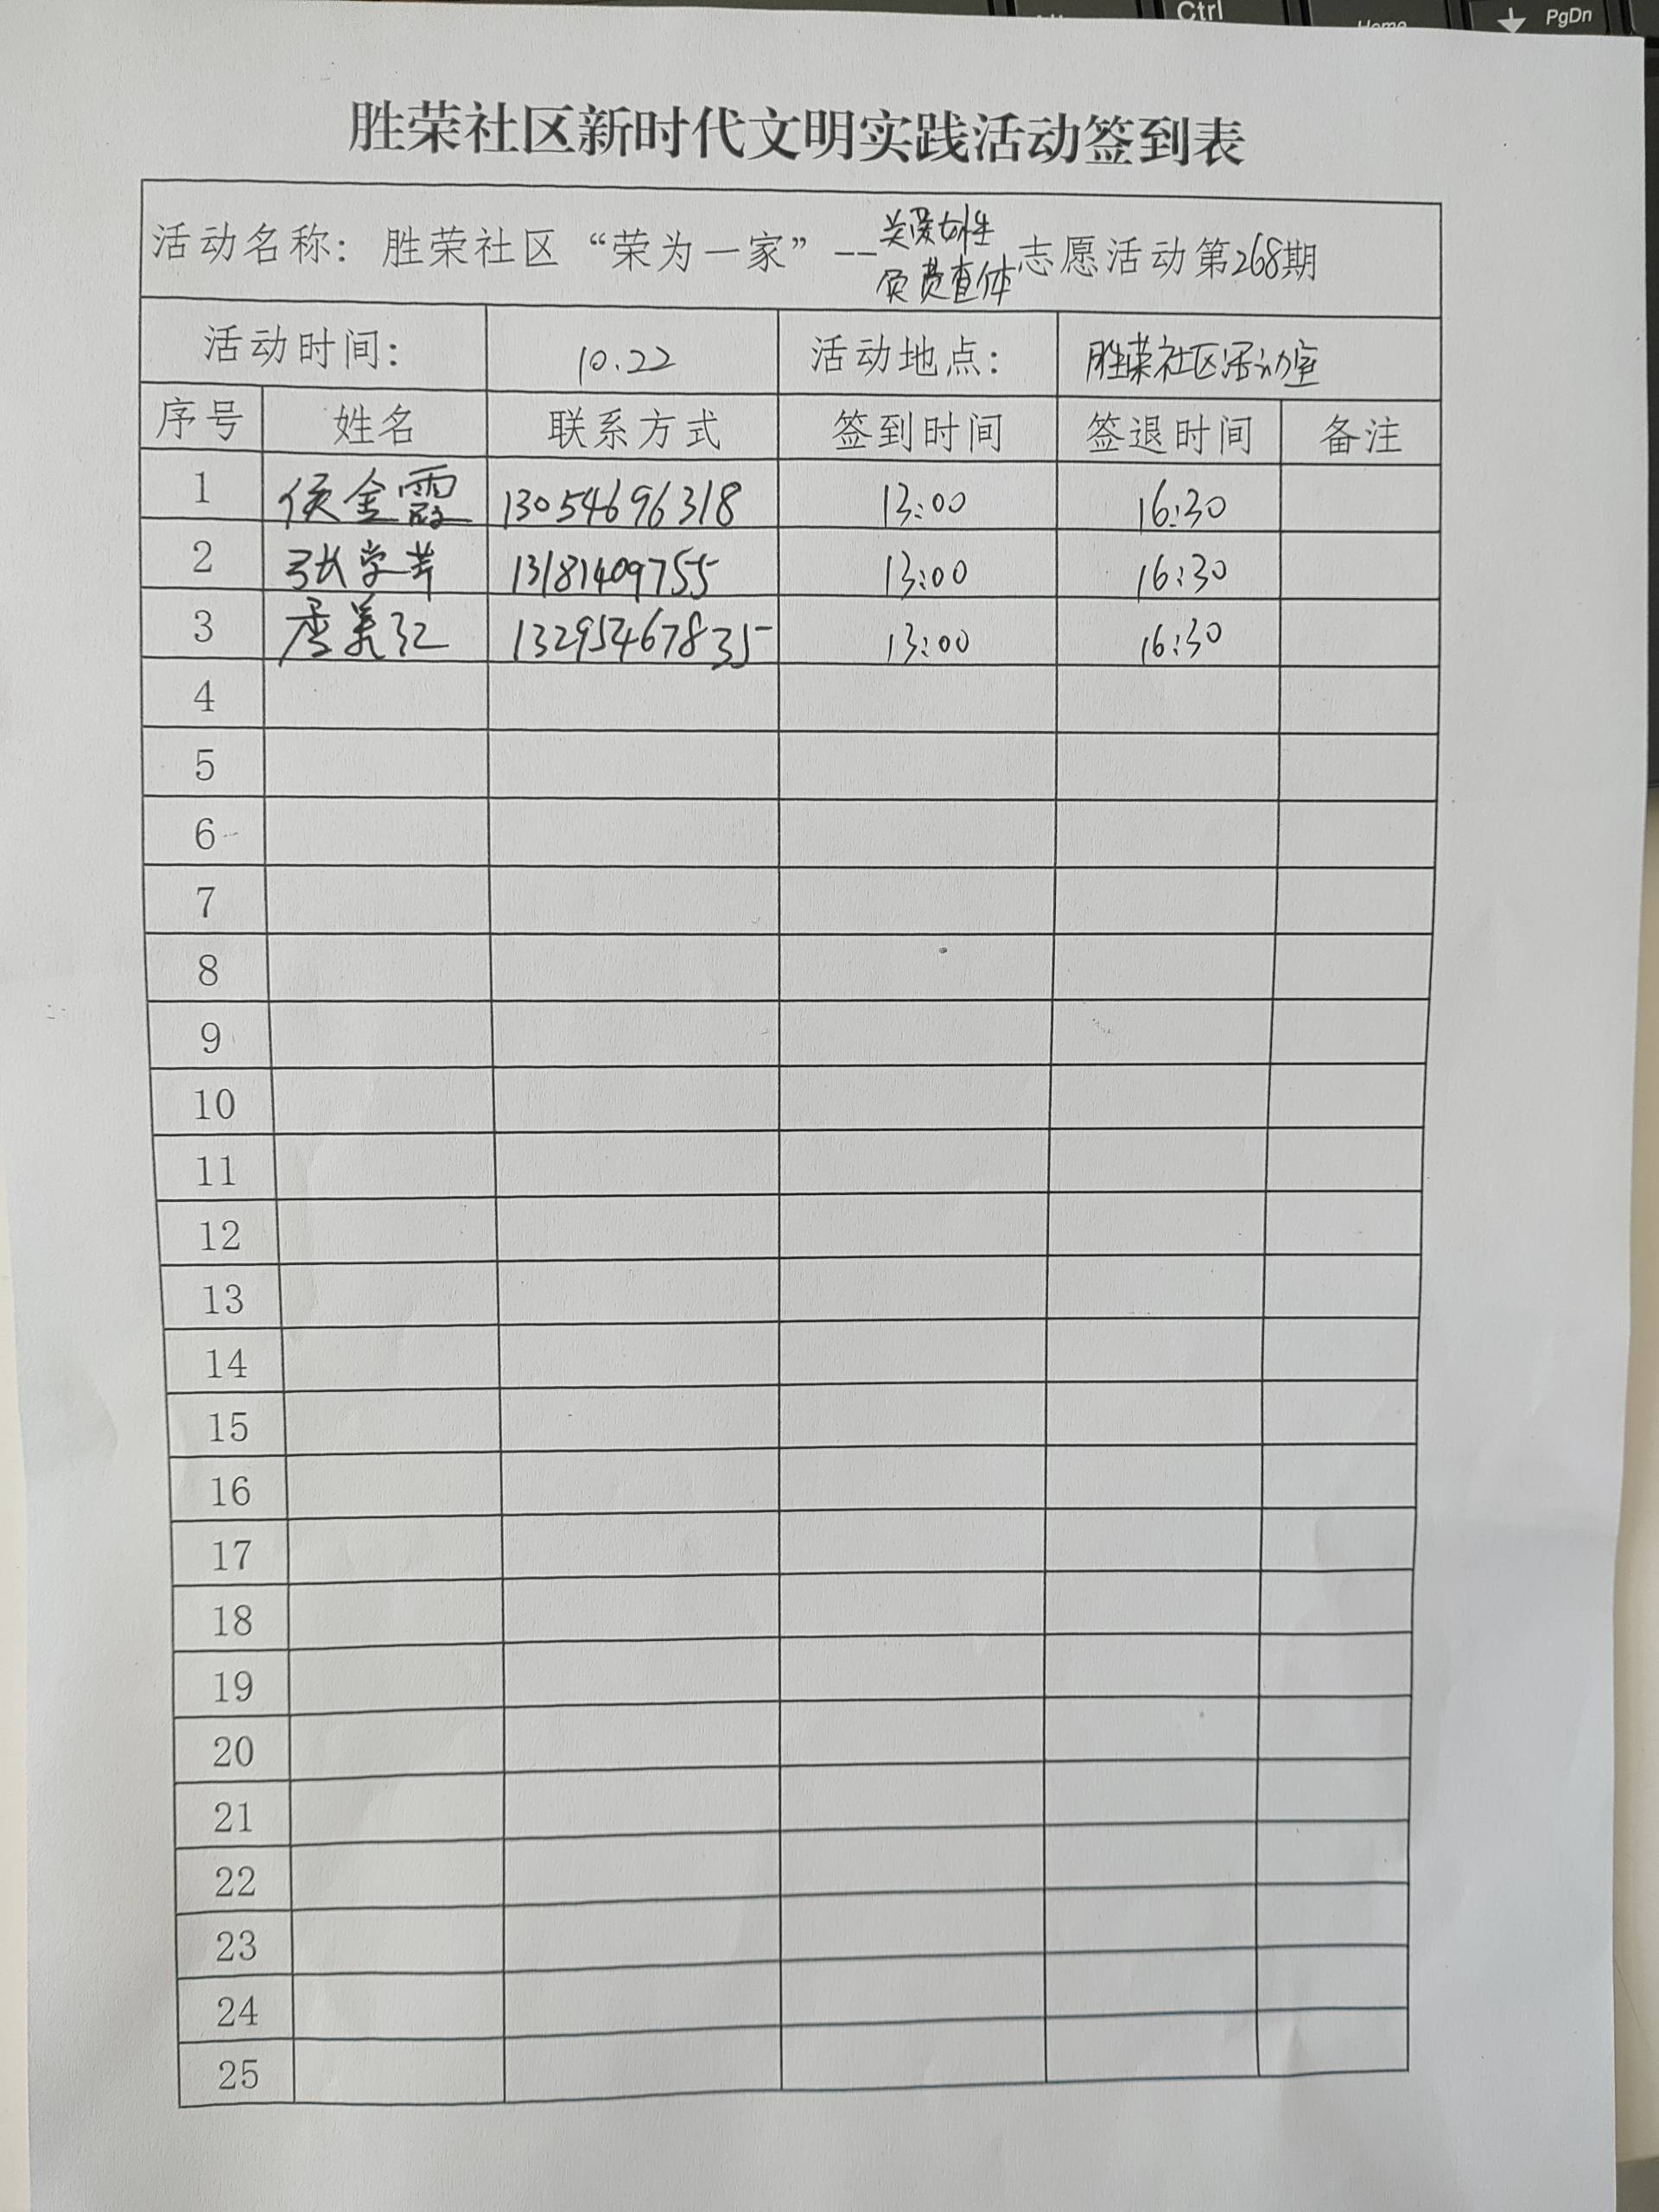 Ctrl
Home
PgDn
胜荣社区新时代文明实践活动签到表
活动名称：胜荣社区“荣为一家”--关爱女性免费查体志愿活动第268期
活动时间： 10.22 活动地点： 胜荣社区活动室
序号 姓名 联系方式 签到时间 签退时间 备注
1 侯金霞 13054696318 13:00 16:30
2 张学芹 13181409755 13:00 16:30
3 美江 13295467835 13:00 16:30
4
5
6
7
8
9
10
11
12
13
14
15
16
17
18
19
20
21
22
23
24
25